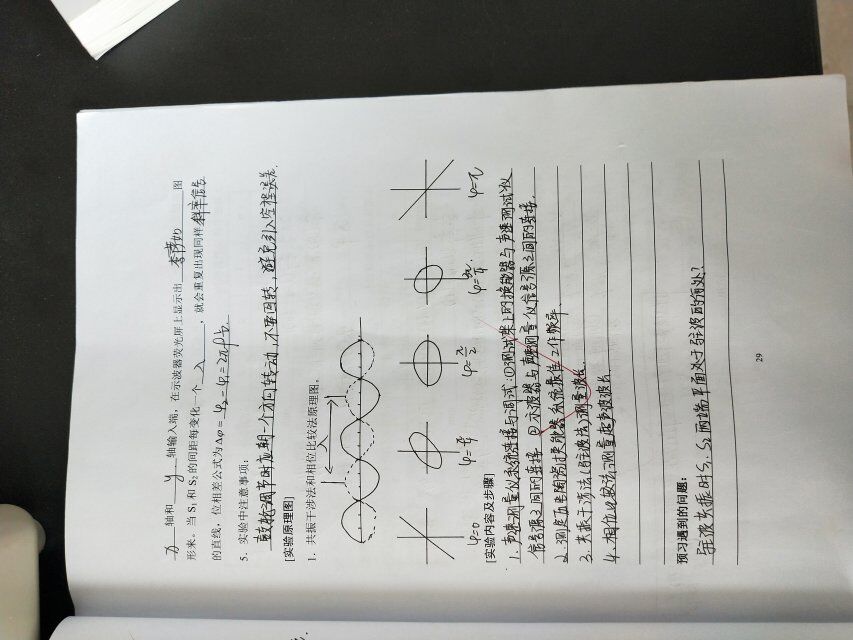 x 轴和 y 轴输入端，在示波器荧光屏上显示出 李萨如 图
形来。当 S₁ 和 S₂ 的间距每变化一个 λ ，就会重复出现同样 斜率信号
的直线，位相差公式为 Δφ = φ₂ - φ₁ = 2πft
5. 实验中注意事项：
鼓轮调节时应朝一个方向转动，不要回转，避免引入空程误差.
[实验原理图]
1. 共振干涉法和相位比较法原理图。
λ
φ=0 φ=π/4 φ=π/2 φ=3π/4 φ=π
[实验内容及步骤]
1. 声速测量仪系统连接与调试：①测试架上的换能器与声速测试仪
信号源之间的连接 ②示波器与声速测量仪信号源之间的连接.
2. 测定压电陶瓷换能器系统最佳工作频率.
3. 共振干涉法(驻波法)测量波长
4. 相位比较法测量超声波波长
预习遇到的问题：
驻波共振时S₁ S₂两端平面处于驻波的何处?
29